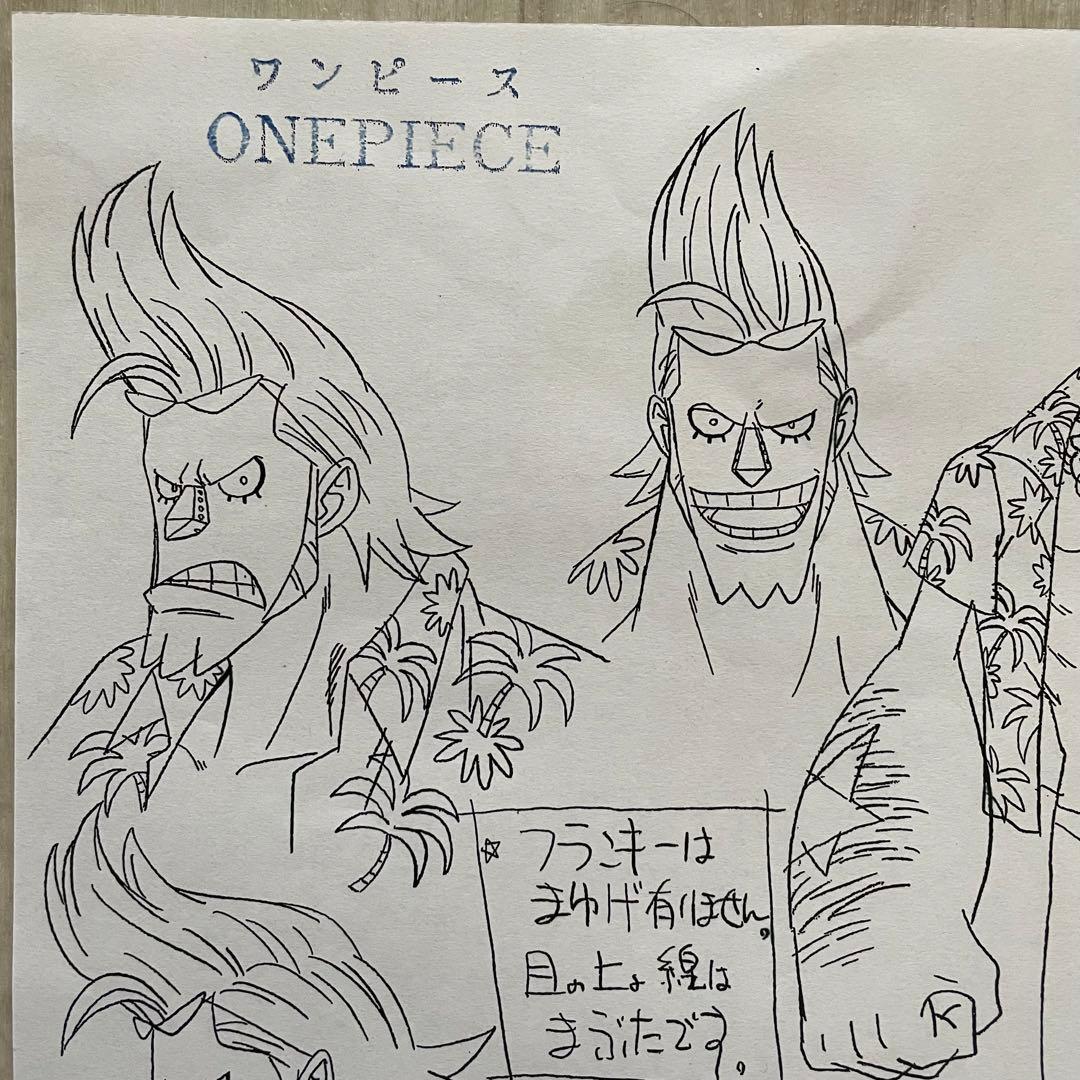 ワンピース
ONEPIECE
☆ フランキーは
まゆげ有りません。
目の上の線は
まぶたです。